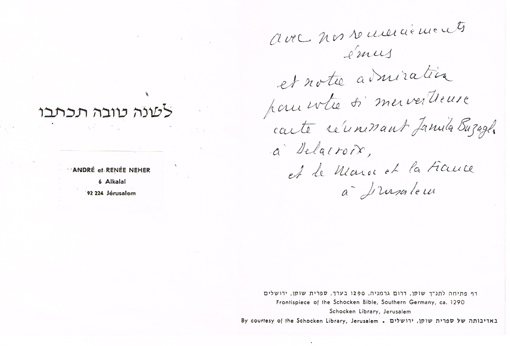 לשנה טובה תכתבו
ANDRÉ et RENÉE NEHER
6 Alkalai
92 224 Jérusalem
avec nos remerciements
émus
et notre admiration
pour votre si merveilleuse
carte réunissant Jamila Buzaglo
à Delacroix,
et le Maroc et la France
à Jérusalem
דף פתיחה לתנ״ך שוקן, דרום גרמניה, 1290 בערך, ספרית שוקן, ירושלים
Frontispiece of the Schocken Bible, Southern Germany, ca. 1290
Schocken Library, Jerusalem
By courtesy of the Schocken Library, Jerusalem • באדיבותה של ספרית שוקן, ירושלים